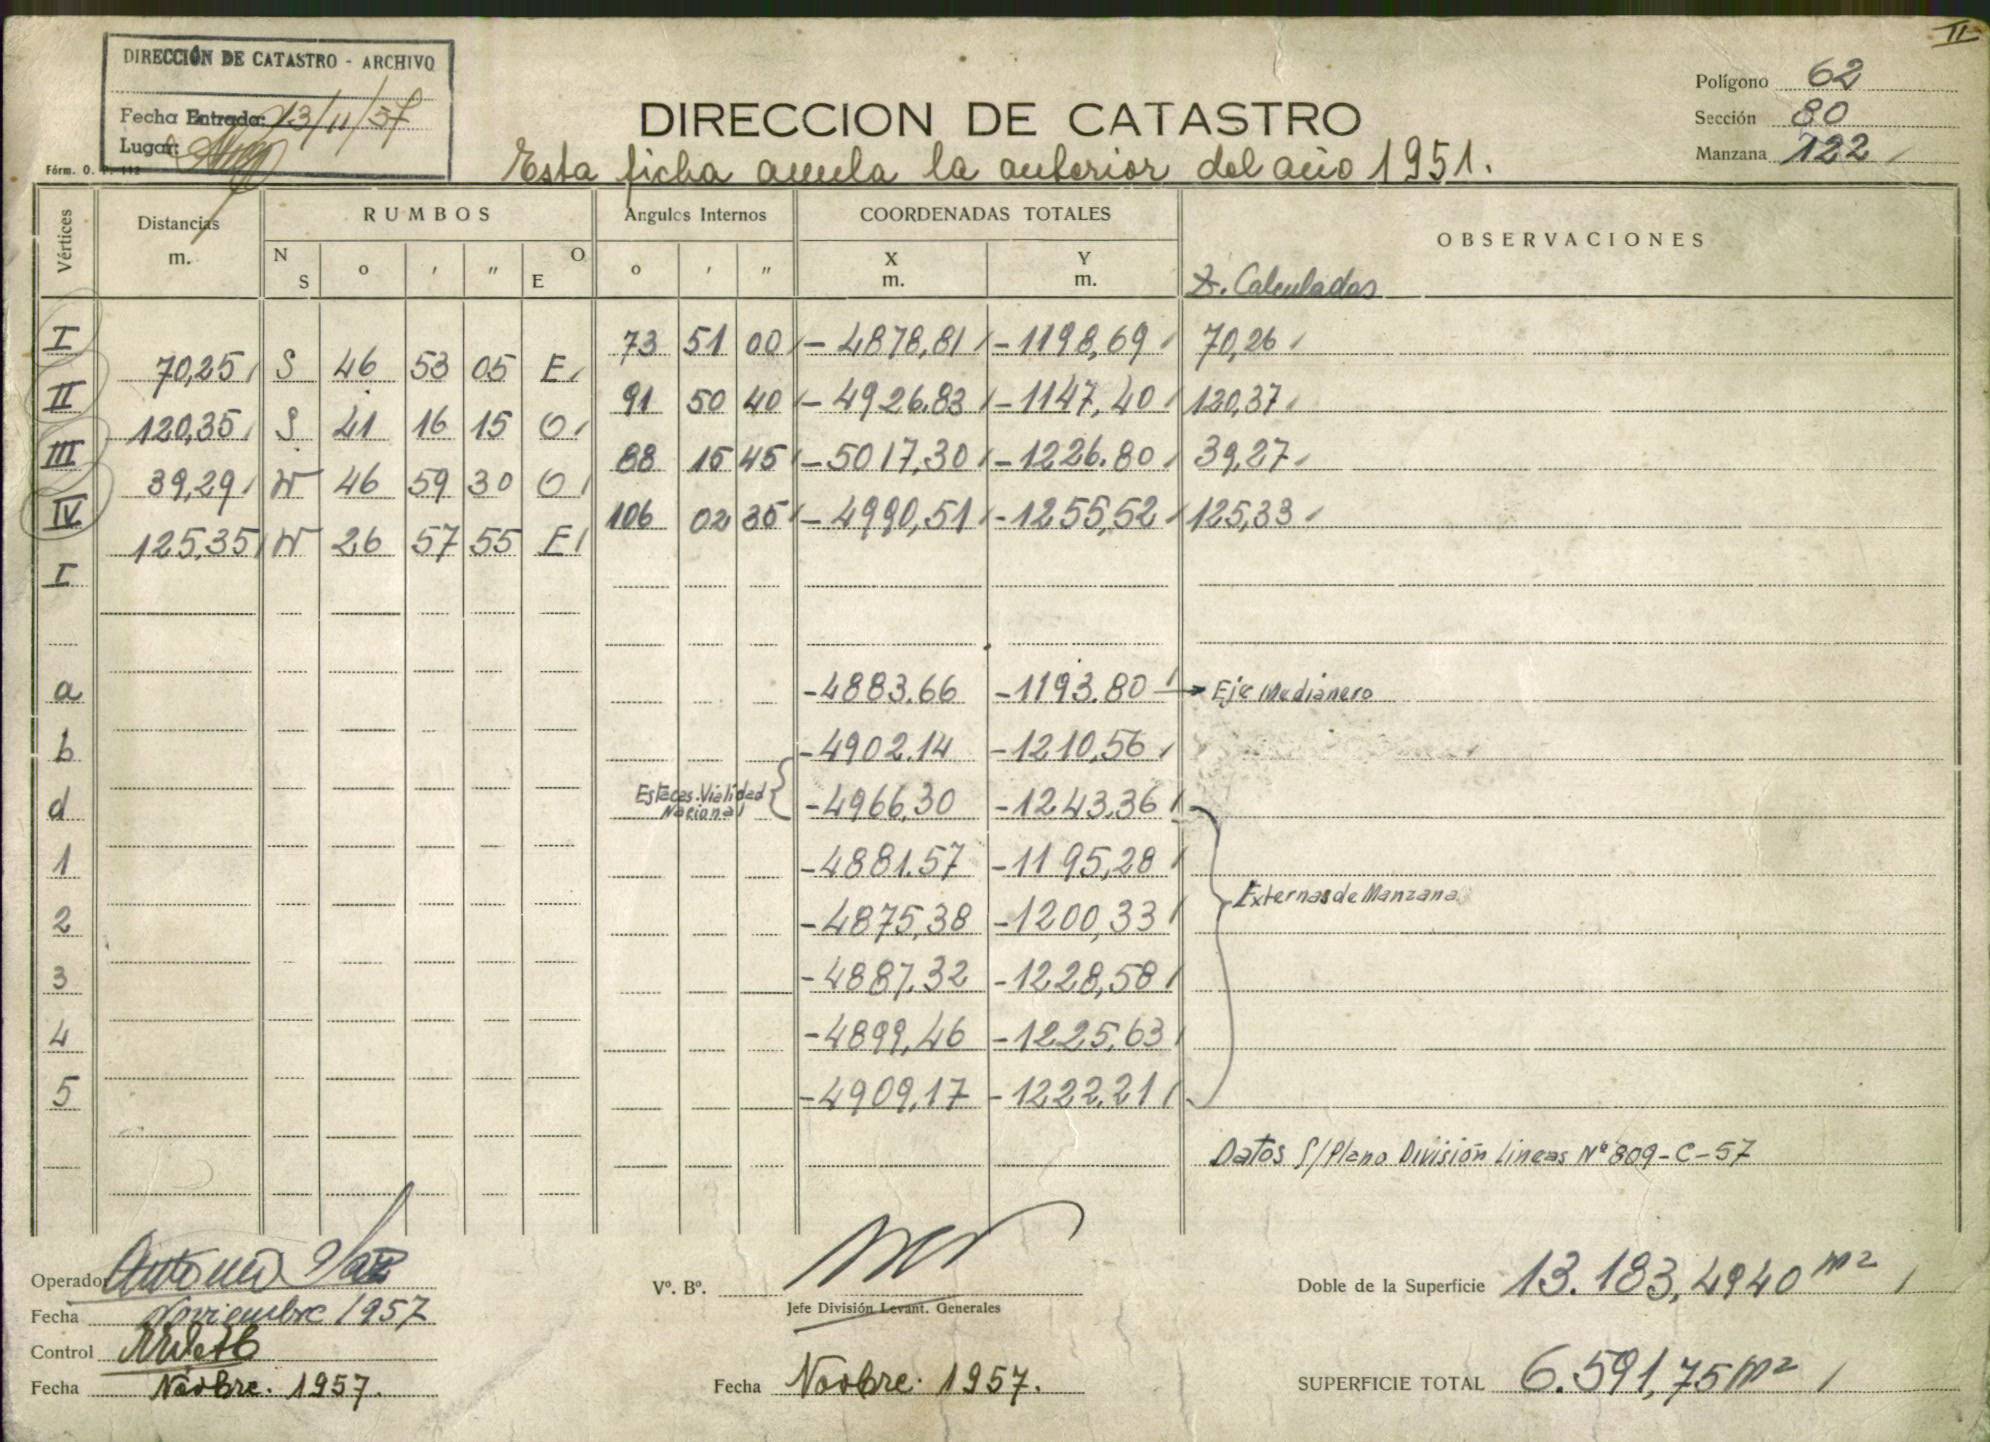 II
DIRECCIÓN DE CATASTRO - ARCHIVO
Fecha Entrada: 13/11/57
Lugar:
Fórm. O. P. 112
DIRECCION DE CATASTRO
Esta ficha anula la anterior del año 1951.
Polígono 62
Sección 80
Manzana 122
Vértices Distancias m. RUMBOS N S o ' " O E Angulos Internos o ' " COORDENADAS TOTALES X m. Y m. OBSERVACIONES
D. Calculadas
I 73 51 00 -4878,81 -1198,69 70,26
70,25 S 46 53 05 E
II 91 50 40 -4926.83 -1147,40 120,37
120,35 S 41 16 15 O
III 88 15 45 -5017,30 -1226.80 39,27
39,29 N 46 59 30 O
IV 106 02 35 -4990,51 -1255,52 125,33
125,35 N 26 57 55 E
I
a -4883.66 -1193.80 → Eje Medianero
b -4902.14 -1210,56
Estacas Vialidad Nacional
d -4966,30 -1243,36
1 -4881.57 -1195,28
Externas de Manzana
2 -4875,38 -1200,33
3 -4887,32 -1228,58
4 -4899,46 -1225,63
5 -4909,17 -1222.21
Datos S/Plano División Lineas Nº 809-C-57
Operador Antonio
Fecha Noviembre 1957
Control
Fecha Novbre. 1957.
Vº. Bº.
Jefe División Levant. Generales
Fecha Novbre. 1957.
Doble de la Superficie 13.183,4940 m2
SUPERFICIE TOTAL 6.591,75 m2